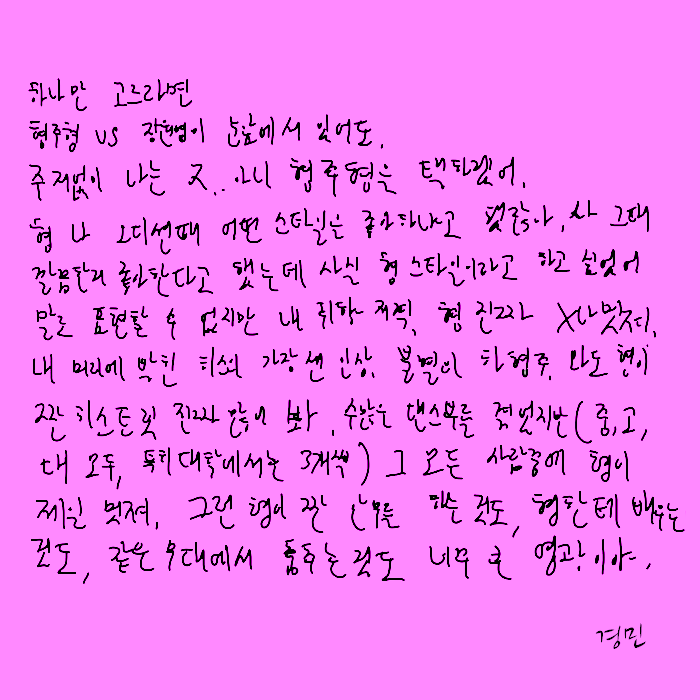 하나만 고르라면
형주형 vs 장원영이 눈앞에서 있어도,
주저없이 나는 ㅈ.. 아니 형주형을 택하겠어.
형 나 오디션때 어떤 스타일을 좋아하냐고 했잖아, 나 그때
깔끔한거 좋아한다고 했는데 사실 형 스타일이라고 하고 싶었어
말로 표현할 수 없지만 내 취향 저격, 형 진짜 X나 멋져,
내 머리에 박힌 최초의 가장 센 인상. 불멸의 하형주. 와도 형이
짠 히스트릿 진짜 많이 봐, 수많은 댄스부를 겪었지만(중,고,
대 모두, 특히 대학에서는 3개씩) 그 모든 사람중에 형이
제일 멋져, 그런 형이 짠 안무를 하는 것도, 형한테 배우는
것도, 같은 무대에서 춤추는 것도 너무 큰 영광이야.
경민